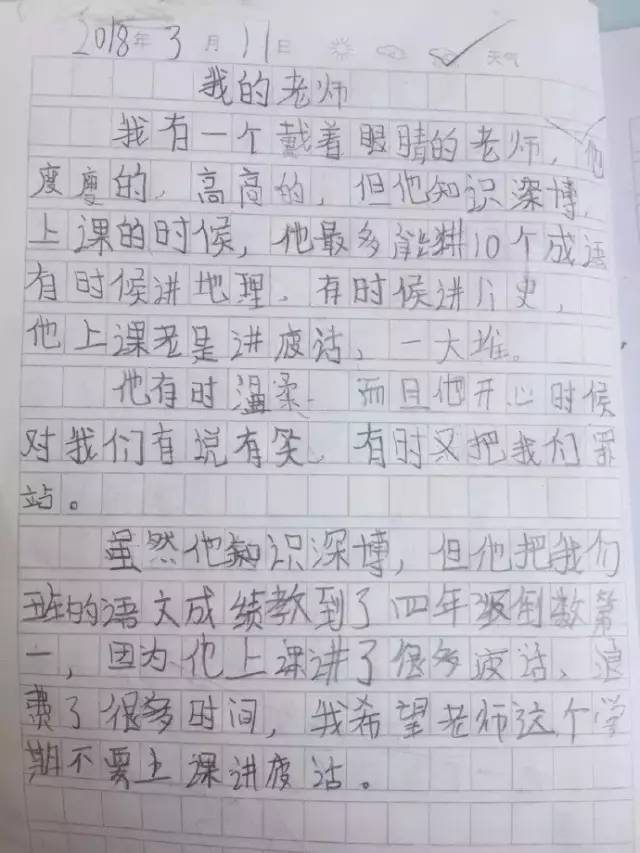 2018年3月11日 天气
我的老师
我有一个戴着眼睛的老师，他
度度的，高高的，但他知识深博，
上课的时候，他最多能讲10个成语
有时候讲地理，有时候进历史，
他上课老是进废话，一大堆。
他有时温柔 而且他开心时候
对我们有说有笑，有时又把我们罪
站。
虽然他知识深博，但他把我们
班的语文成绩教到了四年级倒数第
一，因为他上课进了很多废话，浪
费了很多时间，我希望老师这个学
期不要上课进废话。